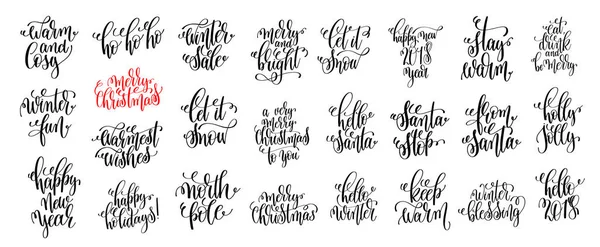 warm
and
cosy
ho ho ho
winter
sale
merry
and
bright
let it
snow
happy new
2018
year
stay
warm
eat
drink
and
be merry
winter
fun
merry
christmas
warmest
wishes
let it
snow
a very
merry
christmas
to you
hello
santa
santa
stop
from
santa
holly
jolly
happy
new
year
happy
holidays!
north
pole
merry
christmas
hello
winter
keep
warm
winter
blessing
hello
2018